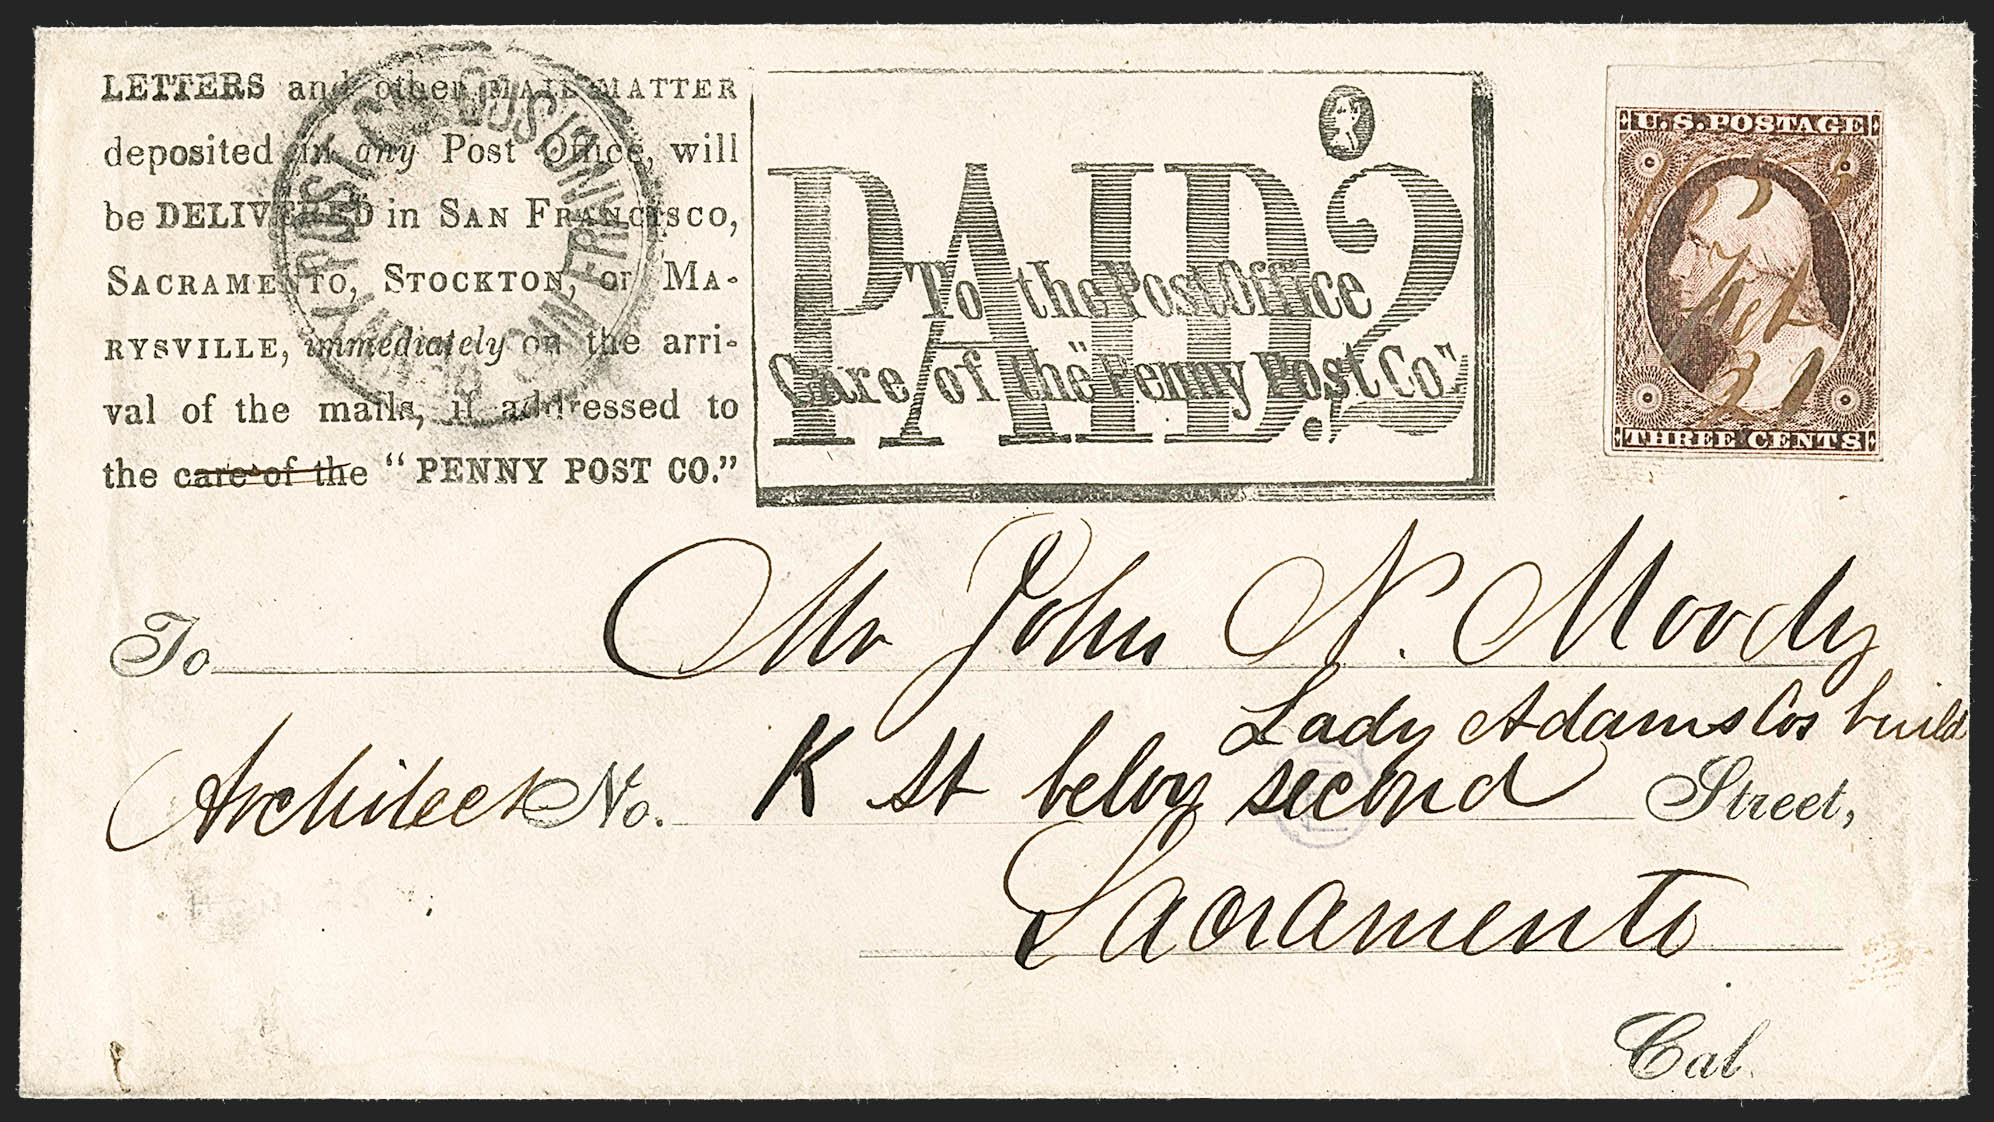 LETTERS and other MAIL MATTER
deposited in any Post Office, will
be DELIVERED in SAN FRANCISCO,
SACRAMENTO, STOCKTON, or MA-
RYSVILLE, immediately on the arri-
val of the mails, if addressed to
the care of the “PENNY POST CO.”
PAID.2
To the Post Office
Care of the "Penny Post Co."
U.S. POSTAGE
185
Feb
21
THREE CENTS
To Mr John N. Moody
Lady Adams Cos build
Architect No. K St beloy second Street,
Sacramento
Cal